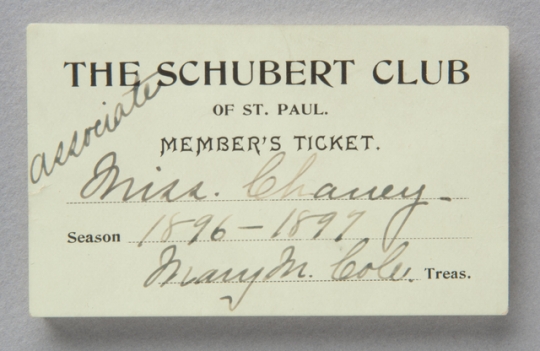 THE SCHUBERT CLUB
OF ST. PAUL.
associate
MEMBER'S TICKET.
Miss. Chaney
Season 1896-1897
Mary M. Cole. Treas.